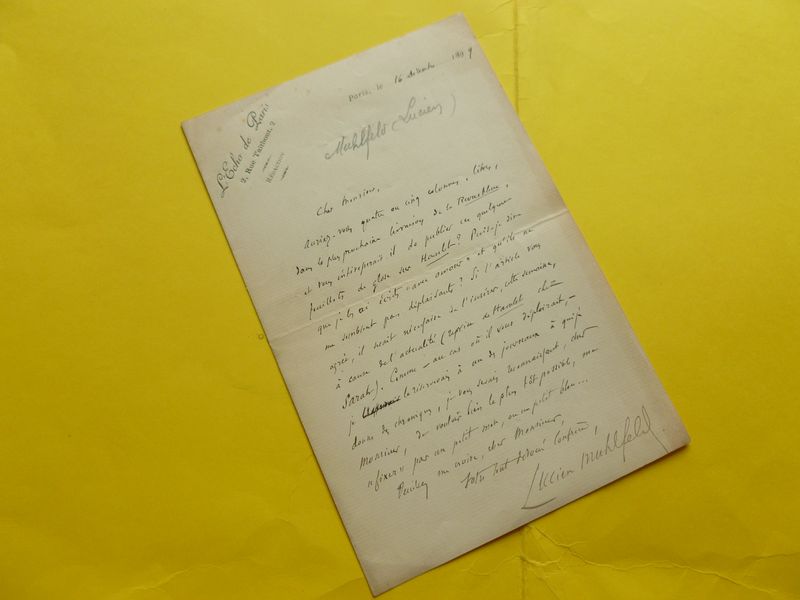 L'Echo de Paris
2, Rue Taitbout, 2
Rédaction
Paris, le 16 décembre 1899
Muhlfeld (Lucien)
Cher Monsieur,
Auriez-vous quatre ou cinq colonnes, libres,
dans la plus prochaine livraison de la
et vous intéresserait il de publier ces quelques
feuillets de glose sur Hamlet ? Puis-je dire
que je les ai écrits "avec amour" et qu'ils ne
me semblent pas déplaisants ? Si l'article vous
agrée, il serait nécessaire de l'insérer, cette semaine,
à cause de l'actualité (reprise de Hamlet chez
Sarah). Comme – au cas où il vous déplairait, –
je le réserverais à un des journaux à qui je
donne des chroniques, je vous serais reconnaissant, cher
Monsieur, de vouloir bien le plus tôt possible, me
"fixer" par un petit mot, ou un petit bleu...
Veuillez me croire, cher Monsieur,
votre tout dévoué confrère,
Lucien Muhlfeld